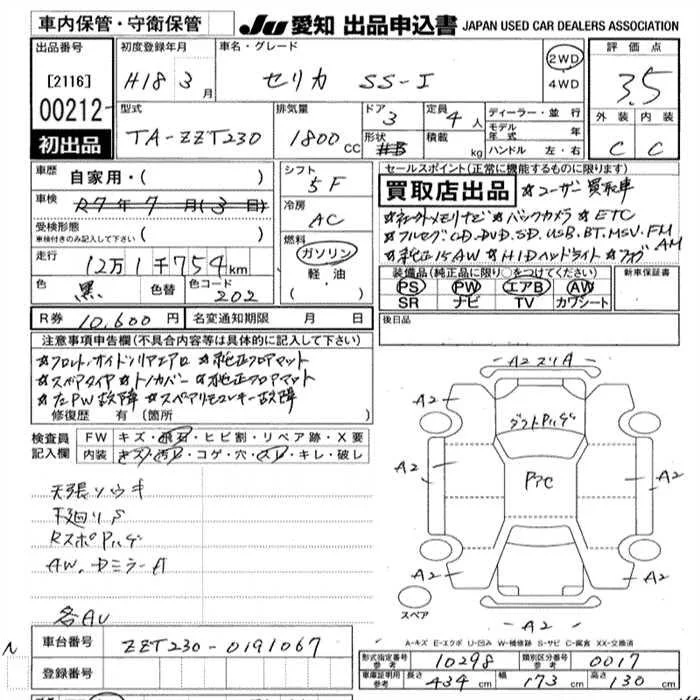 車内保管・守衛保管
JU 愛知 出品申込書 JAPAN USED CAR DEALERS ASSOCIATION
出品番号 初度登録年月 車名・グレード 評価点
[2116] H18 3月 セリカ SS-I 2WD 4WD 3.5
00212
初出品
型式 排気量 ドア 定員 ディーラー・並行 外装 内装
TA-ZZT230 1800CC 3 4人 形状 積載 kg モデル年式 年 ハンドル 左・右 C C
車歴 自家用・( ) シフト 5F
車検 R7年7月(3日)
受検形態 車検付きのみ記入して下さい ( ) 冷房 AC
走行 12万1千754km 燃料 ガソリン 軽・油 ( )
色 黒 色替 色コード 202
セールスポイント(正常に機能するものに限ります)
買取店出品 ☆ユーザー買取車
☆バックカメラ ☆ETC
☆フルセグ.CD.DVD.SD.USB.BT.MSV.FM AM
☆純正15AW ☆HIDヘッドライト ☆フォグ
装備品(純正品に限り○をつけてください) 新車保証書
PS PW エアB AW
SR ナビ TV カワシート
R券 10,600円 名変通知期限 月 日 後日品
注意事項申告欄(不具合内容等は具体的に記入して下さい)
☆フロント.サイド.リアエアロ ☆純正フロアマット
☆スペアタイヤ ☆トノカバー ☆純正フロアマット
☆左PW故障 ☆スペアリモコンキー故障
修復歴 有 (箇所 )
検査員記入欄 FW キズ・飛石・ヒビ割・リペア跡・X要
内装 キズ・汚れ・コゲ・穴・スレ・キレ・破レ
天張ソウキ
下廻りS
RスポPハゲ
AW.ドミラーA
各AU
A2スリA
A2 A2
P7C
A2 A2
A2 A2
スペア
A2
A-キズ E-エクボ U-凹み W-補修跡 S-サビ C-腐食 XX-交換済
N
車台番号 ZZT230-0191067
登録番号
形式指定番号 参考 10298 類別区分番号 参考 0017
車庫証明用 参考 長さ 434cm 幅 173cm 高さ 130cm